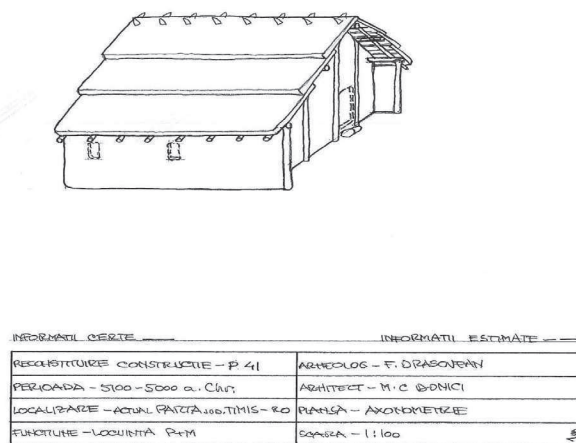 INFORMATII CERTE
INFORMATII ESTIMATE
RECONSTITUIRE CONSTRUCTIE - P. 41
ARHEOLOG - F. DRASOVEAN
PERIOADA - 5100-5000 a. Chr.
ARHITECT - M. C BONICI
LOCALIZARE - ACTUAL PARTA JUD. TIMIS - RO
PLANSA - AXONOMETRIE
FUNCTIUNE - LOCUINTA P+M
SCARA - 1:100